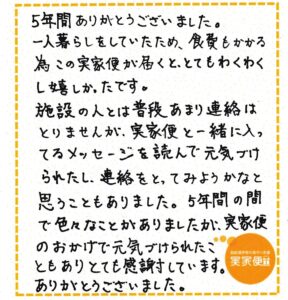 5年間ありがとうございました。
一人暮らしをしていたため、食費もかかる
為この実家便が届くと、とてもわくわく
し嬉しかったです。
施設の人とは普段あまり連絡は
とりませんが、実家便と一緒に入っ
てるメッセージを読んで元気づけ
られたし、連絡をとってみようかなと
思うこともありました。5年間の間
で色々なことがありましたが、実家便
のおかげで元気づけられたこ
ともありとても感謝しています。
ありがとうございました。
実家便